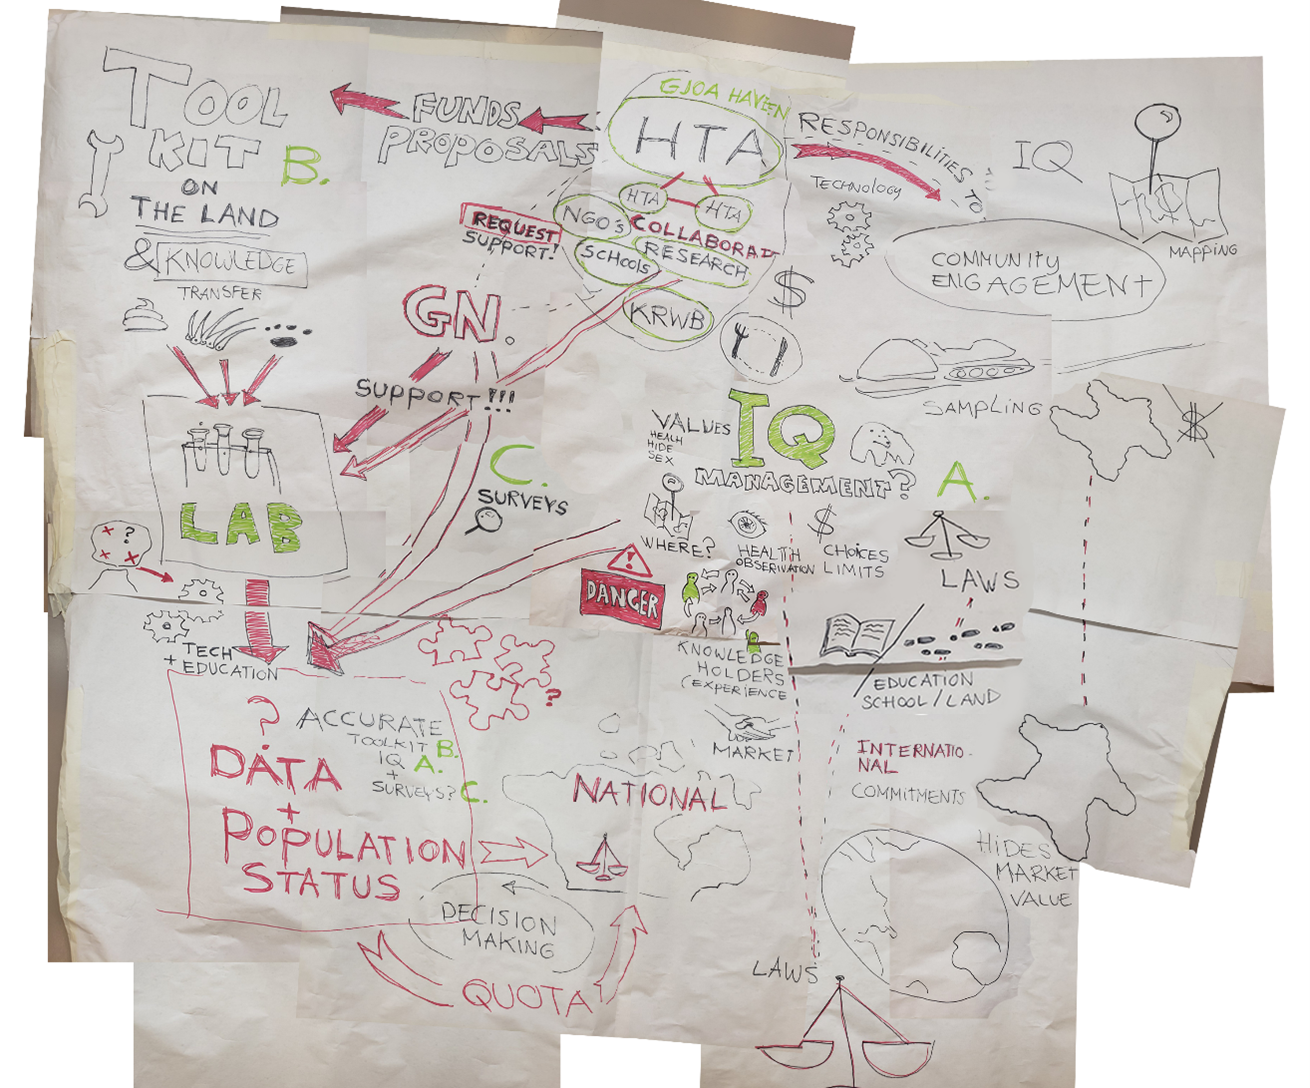 TOOL
KIT B.
ON
THE LAND
& KNOWLEDGE
TRANSFER
FUNDS
PROPOSALS
GJOA HAVEN
HTA
HTA
HTA
NGO'S
COLLABORAT
SCHOOLS
RESEARCH
KRWB
REQUEST
SUPPORT!
GN.
SUPPORT!!!
RESPONSIBILITIES TO
TECHNOLOGY
IQ
MAPPING
COMMUNITY
ENGAGEMENT
$
SAMPLING
$
LAB
?
C.
SURVEYS
VALUES
MEALH
HIDE
SEX
IQ
MANAGEMENT?
A.
WHERE?
HEALTH
OBSERIVATION
$
CHOICES
LIMITS
LAWS
DANGER
KNOWLEDGE
HOLDERS
(EXPERIENCE
MARKET
EDUCATION
SCHOOL/LAND
INTERNATIO-
NAL
COMMITMENTS
HIDES
MARKET
VALUE
TECH
+ EDUCATION
?
?
ACCURATE
TOOLKIT B.
IQ A.
+
SURVEYS? C.
DATA
+
POPULATION
STATUS
NATIONAL
DECISION
MAKING
QUOTA
LAWS